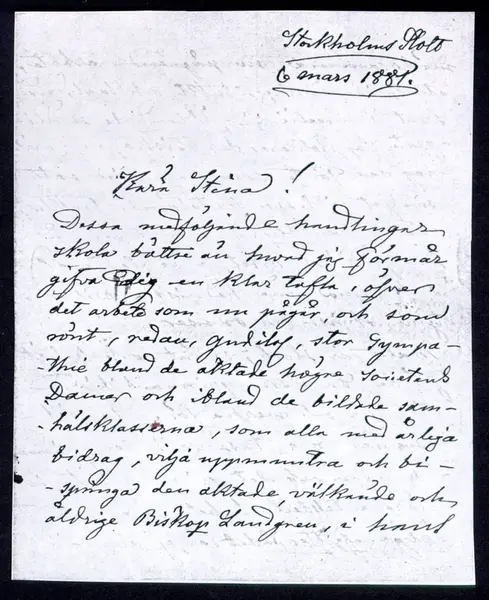 Stockholms Slott
6 mars 1881.
Kära Stina!
Dessa medföljande handlingar
skola bättre än hvad jag förmår
gifva dig en klar tafla, öfver
det arbete som nu pågår, och som
rönt, redan, gudilof, stor Sympa-
-thie bland de aktade högre societens
Damer och ibland de bildade sam-
-hälsklasserna, som alla med årliga
bidrag, vilja uppmuntra och bi-
-springa den aktade, välkände och
åldrige Biskop Landgren, i hans